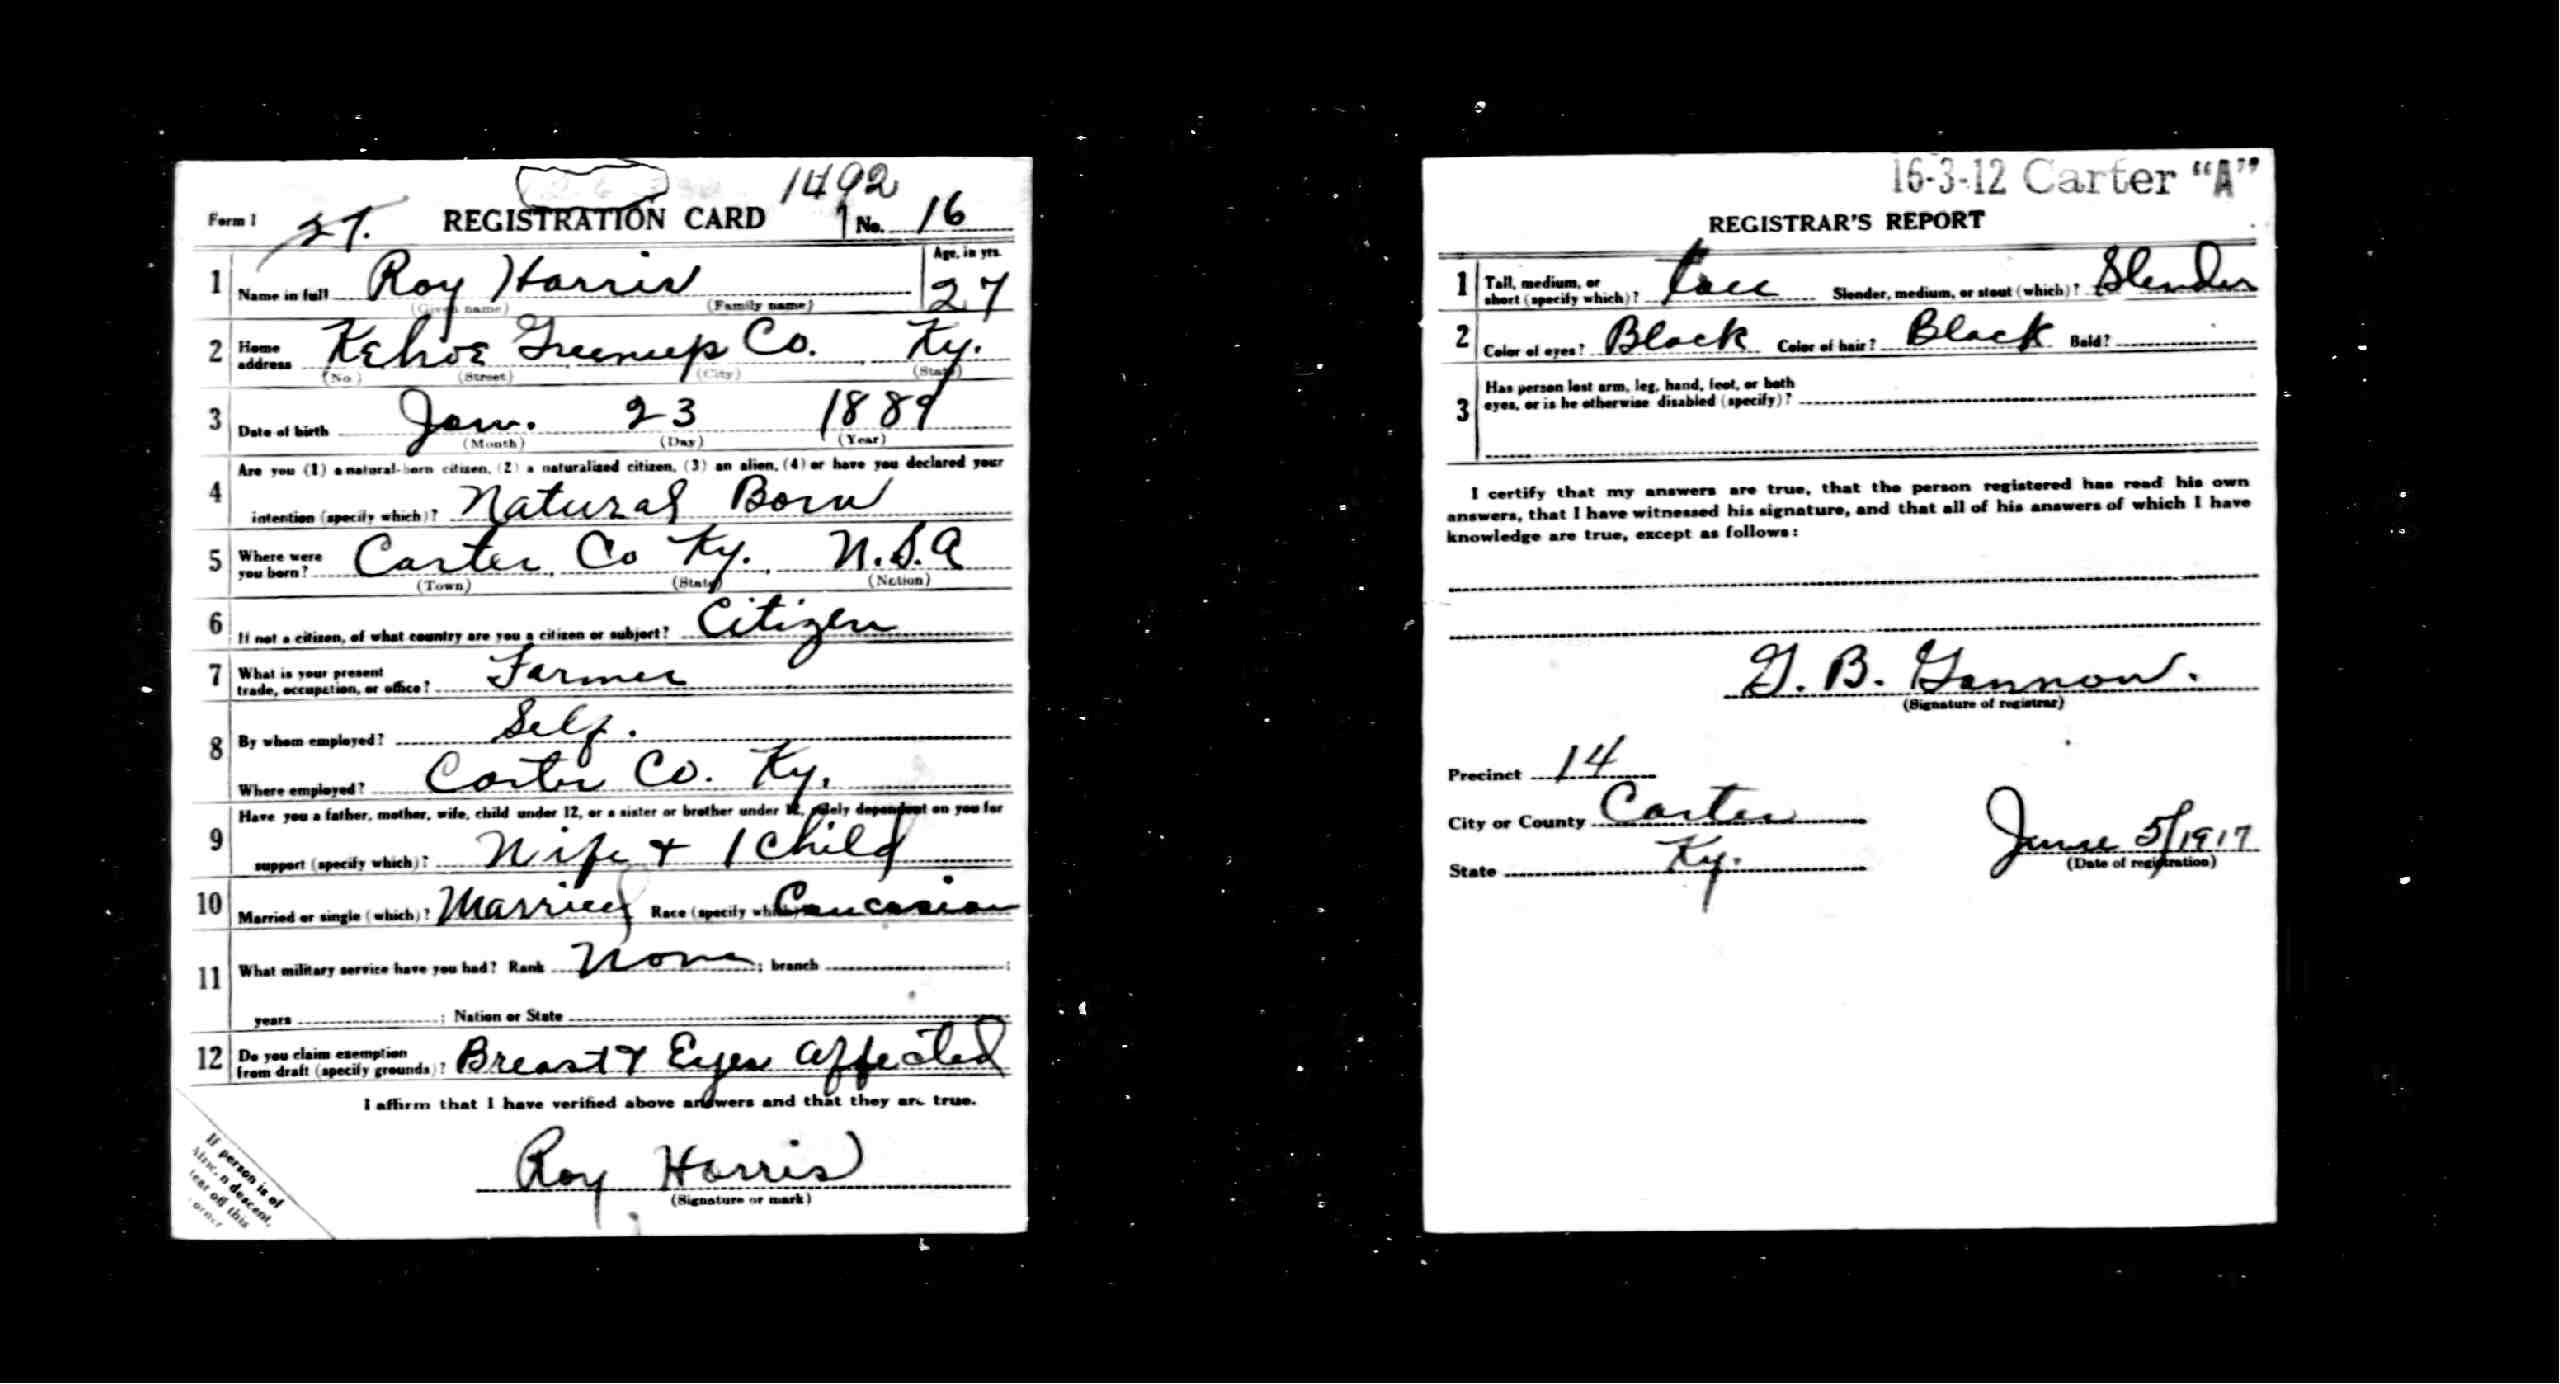 1492
Form 1 27. REGISTRATION CARD No. 16
1 Name in full Roy Harris Age, in yrs. 27
(Given name) (Family name)
2 Home address Kehoe Greenup Co. Ky.
(No.) (Street) (City) (State)
3 Date of birth Jan. 23 1889
(Month) (Day) (Year)
4 Are you (1) a natural-born citizen, (2) a naturalized citizen, (3) an alien, (4) or have you declared your
intention (specify which)? Natural Born
5 Where were you born? Carter Co Ky. U.S.A
(Town) (State) (Nation)
6 If not a citizen, of what country are you a citizen or subject? Citizen
7 What is your present
trade, occupation, or office? Farmer
8 By whom employed? Self.
Where employed? Carter Co. Ky.
9 Have you a father, mother, wife, child under 12, or a sister or brother under 12, solely dependent on you for
support (specify which)? Wife + 1 Child
10 Married or single (which)? Married Race (specify which)? Caucasian
11 What military service have you had? Rank None ; branch ;
years ; Nation or State
12 Do you claim exemption
from draft (specify grounds)? Breast & Eyes affected
I affirm that I have verified above answers and that they are true.
Roy Harris
(Signature or mark)
If person is of
African descent,
tear off this
corner
16-3-12 Carter "A"
REGISTRAR'S REPORT
1 Tall, medium, or
short (specify which)? tall Slender, medium, or stout (which)? Slender
2 Color of eyes? Black Color of hair? Black Bald?
3 Has person lost arm, leg, hand, foot, or both
eyes, or is he otherwise disabled (specify)?
I certify that my answers are true, that the person registered has read his own
answers, that I have witnessed his signature, and that all of his answers of which I have
knowledge are true, except as follows:
G. B. Gannon.
(Signature of registrar)
Precinct 14
City or County Carter
State Ky.
June 5/1917
(Date of registration)